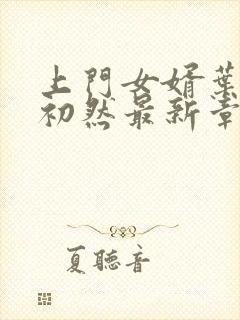 上門女婿葉
初然最新章
夏聽音